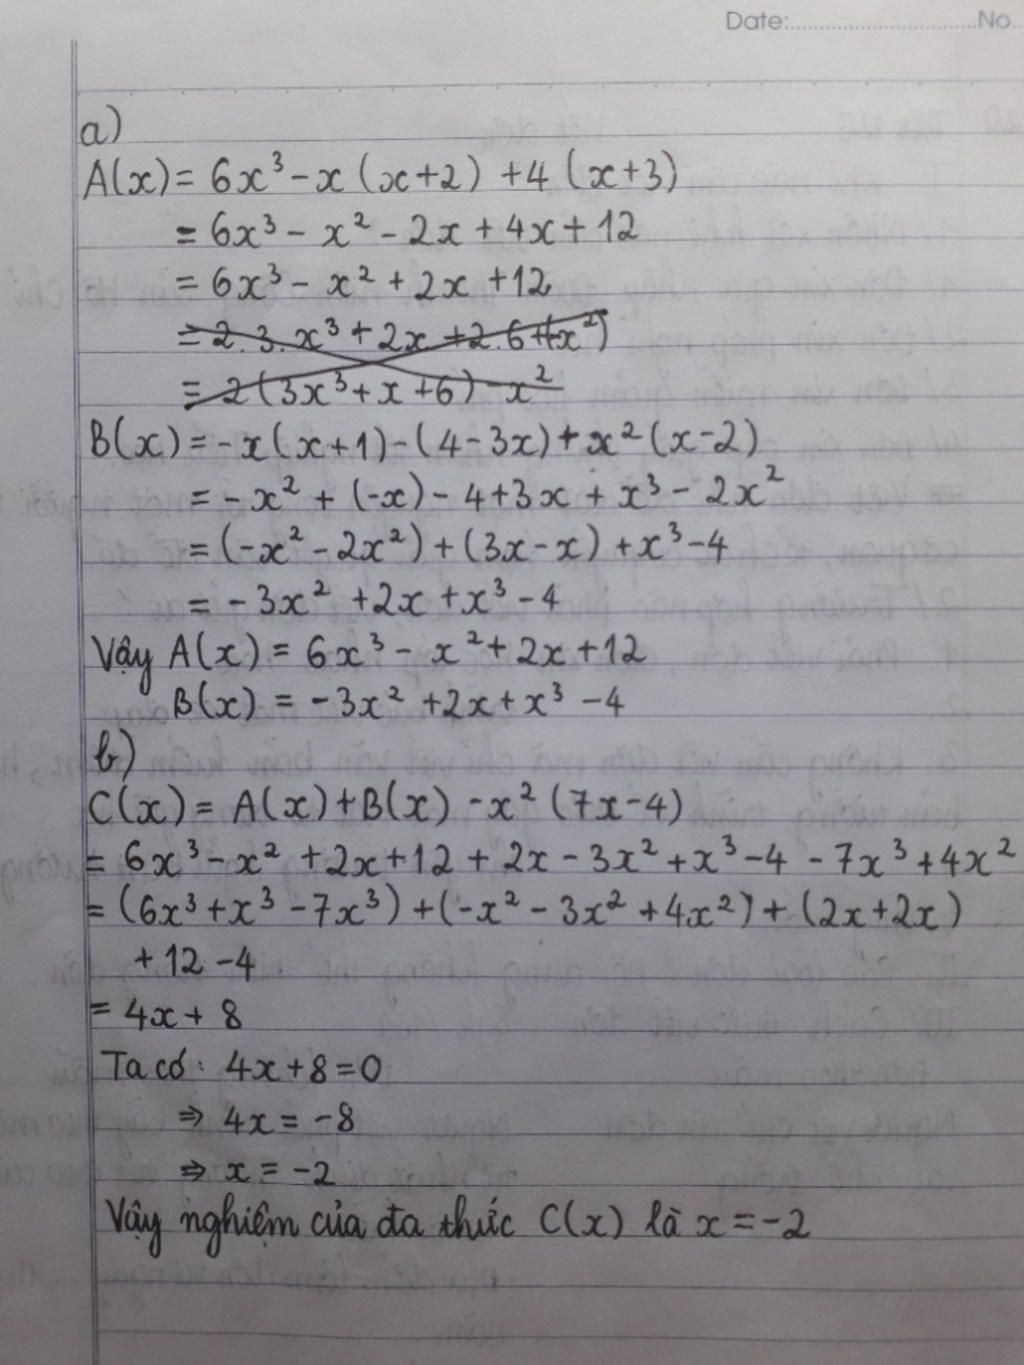 Date:..............................No.
a)
A(x) = 6x³ - x (x+2) + 4 (x+3)
= 6x³ - x² - 2x + 4x + 12
= 6x³ - x² + 2x + 12
= 2.3.x³ + 2x + 2.6 + (-x²)
= 2(3x³ + x + 6) - x²
B(x) = -x(x+1) - (4-3x) + x² (x-2)
= -x² + (-x) - 4 + 3x + x³ - 2x²
= (-x² - 2x²) + (3x - x) + x³ - 4
= -3x² + 2x + x³ - 4
Vậy A(x) = 6x³ - x² + 2x + 12
B(x) = -3x² + 2x + x³ - 4
b)
C(x) = A(x) + B(x) - x² (7x-4)
= 6x³ - x² + 2x + 12 + 2x - 3x² + x³ - 4 - 7x³ + 4x²
= (6x³ + x³ - 7x³) + (-x² - 3x² + 4x²) + (2x + 2x)
+ 12 - 4
= 4x + 8
Ta có: 4x + 8 = 0
⇒ 4x = -8
⇒ x = -2
Vậy nghiệm của đa thức C(x) là x = -2